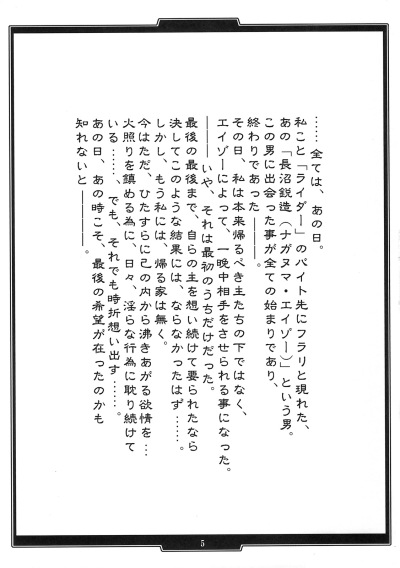 ……全ては、あの日。
私こと「ライダー」のバイト先にフラリと現れた、
あの「長沼鋭造（ナガヌマ・エイゾー）」という男。
この男に出会った事が全ての始まりであり、
終わりであった――――。
その日、私は本来帰るべき主たちの下ではなく、
エイゾーによって、一晩中相手をさせられる事になった。
――――いや、それは最初のうちだけだった。
最後の最後まで、自らの主を想い続けて要られたなら
決してこのような結果には、ならなかったはず……。
しかし、もう私には、帰る家は無く。
今はただ、ひたすらに己の内から沸きあがる欲情を…
火照りを鎮める為に、日々、淫らな行為に耽り続けて
いる……　でも、それでも時折想い出す……。
あの日、あの時こそ、最後の希望が在ったのかも
知れないと――――。
5